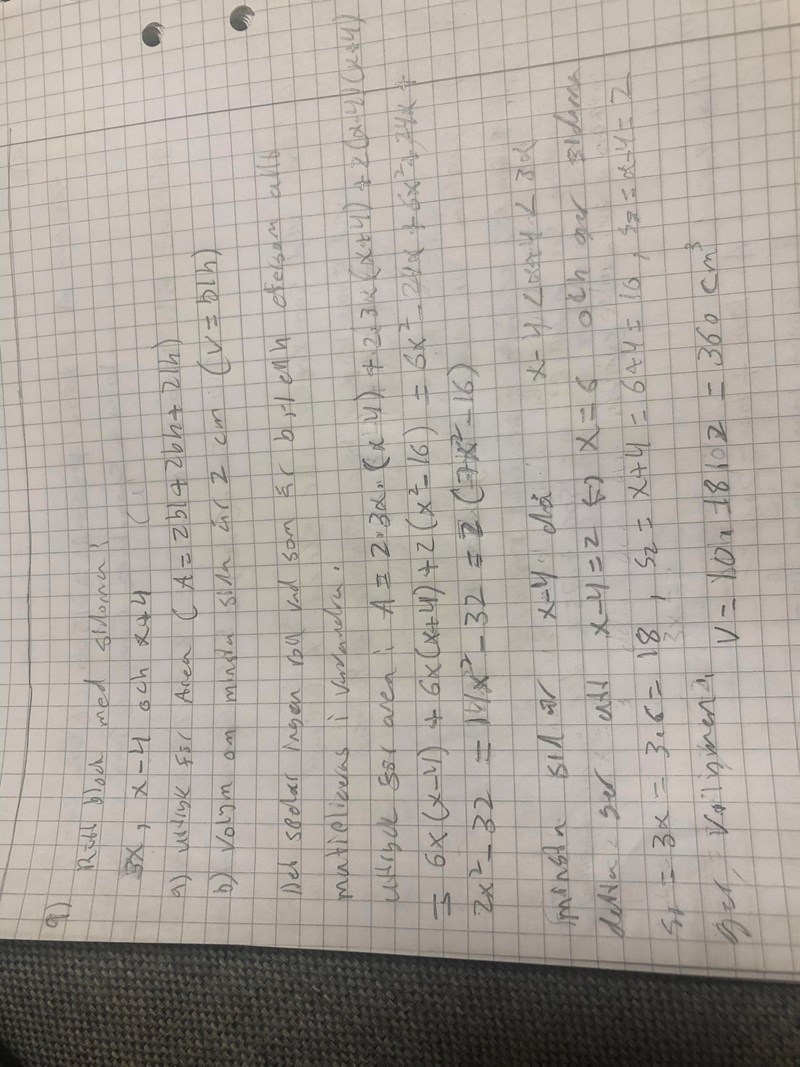 9)
Rätt block med sidorna:
3x, x-4 och x+4
a) uttryck för Area (A = 2bl+2bh+2lh)
b) Volym om minsta sida är 2 cm (V=blh)
Det spelar ingen roll vad som är b, l eller h eftersom allt
multipliceras i varandra.
uttryck för area: A = 2·3x·(x-4) + 2·3x(x+4) + 2(x-4)(x+4)
= 6x(x-4) + 6x(x+4) + 2(x²-16) = 6x²-24x+6x²+24x+
2x²-32 = 14x²-32 = 2(7x²-16)
minsta sid är x-4 då x-4<x+4<3x
detta ger att x-4=2 ⇔ x=6 och ger sidorna
s₁ = 3x = 3·6 = 18, s₂ = x+4 = 6+4 = 10, s₃ = x-4 = 2
ger, volymen: V = 10·18·2 = 360 cm³